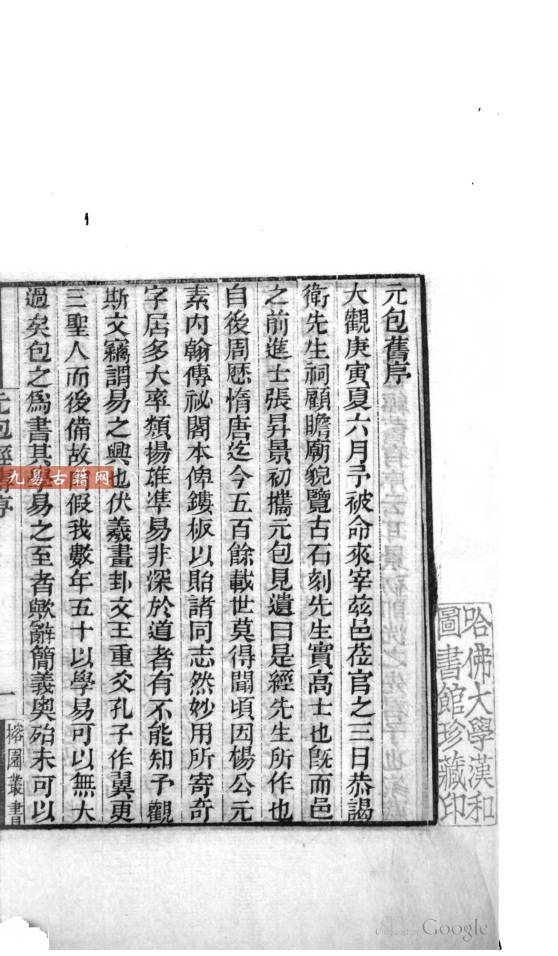 元包舊序
大觀庚寅夏六月予被命來宰茲邑莅官之三日恭謁
衛先生祠顧瞻廟貌覽古石刻先生實高士也旣而邑
之前進士張昇景初攜元包見遺曰是經先生所作也
自後周歷隋唐迄今五百餘載世莫得聞頃因楊公元
素内翰傳祕閣本俾鏤板以貽諸同志然妙用所寄奇
字居多大率類揚雄準易非深於道者有不能知予觀
斯文竊謂易之興也伏羲畫卦文王重爻孔子作翼更
三聖人而後備故假我數年五十以學易可以無大
過矣包之爲書其易之至者歟辭簡義奧殆未可以
元包經序
一
榕園叢書
九易古籍网
哈佛大學漢和
圖書館珍藏印
Google